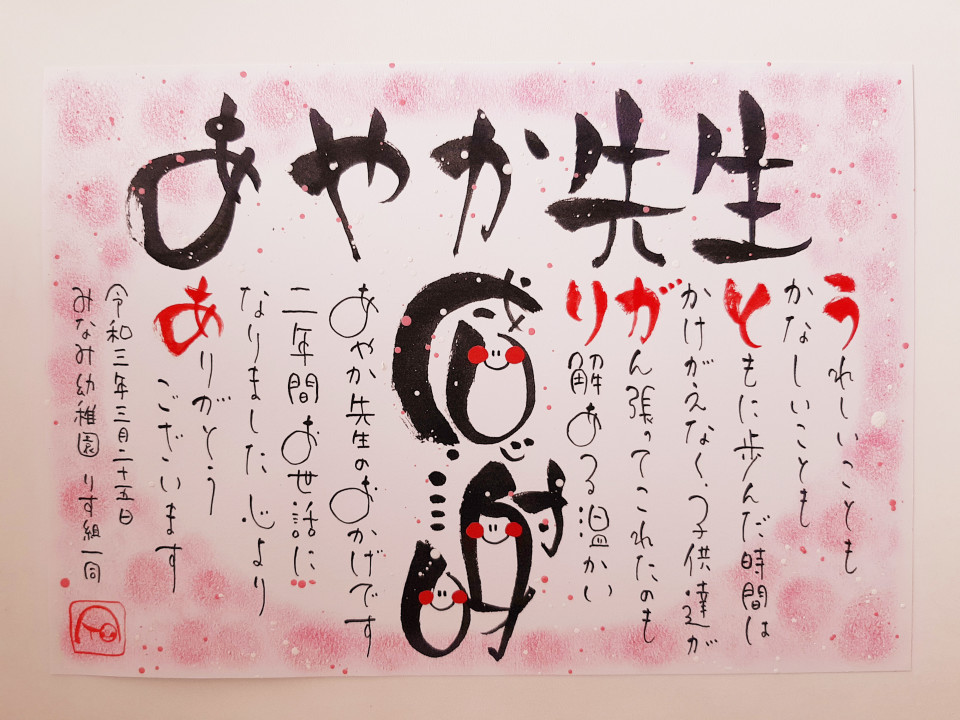 あやか先生
うれしいことも
かなしいことも
ともに歩んだ時間は
かけがえなく、子供達が
がん張ってこれたのも
り解ある温かい
あやか先生のおかげです
二年間お世話に
なりました。心より
ありがとう
ございます
令和三年三月二十五日
みなみ幼稚園 りす組一同